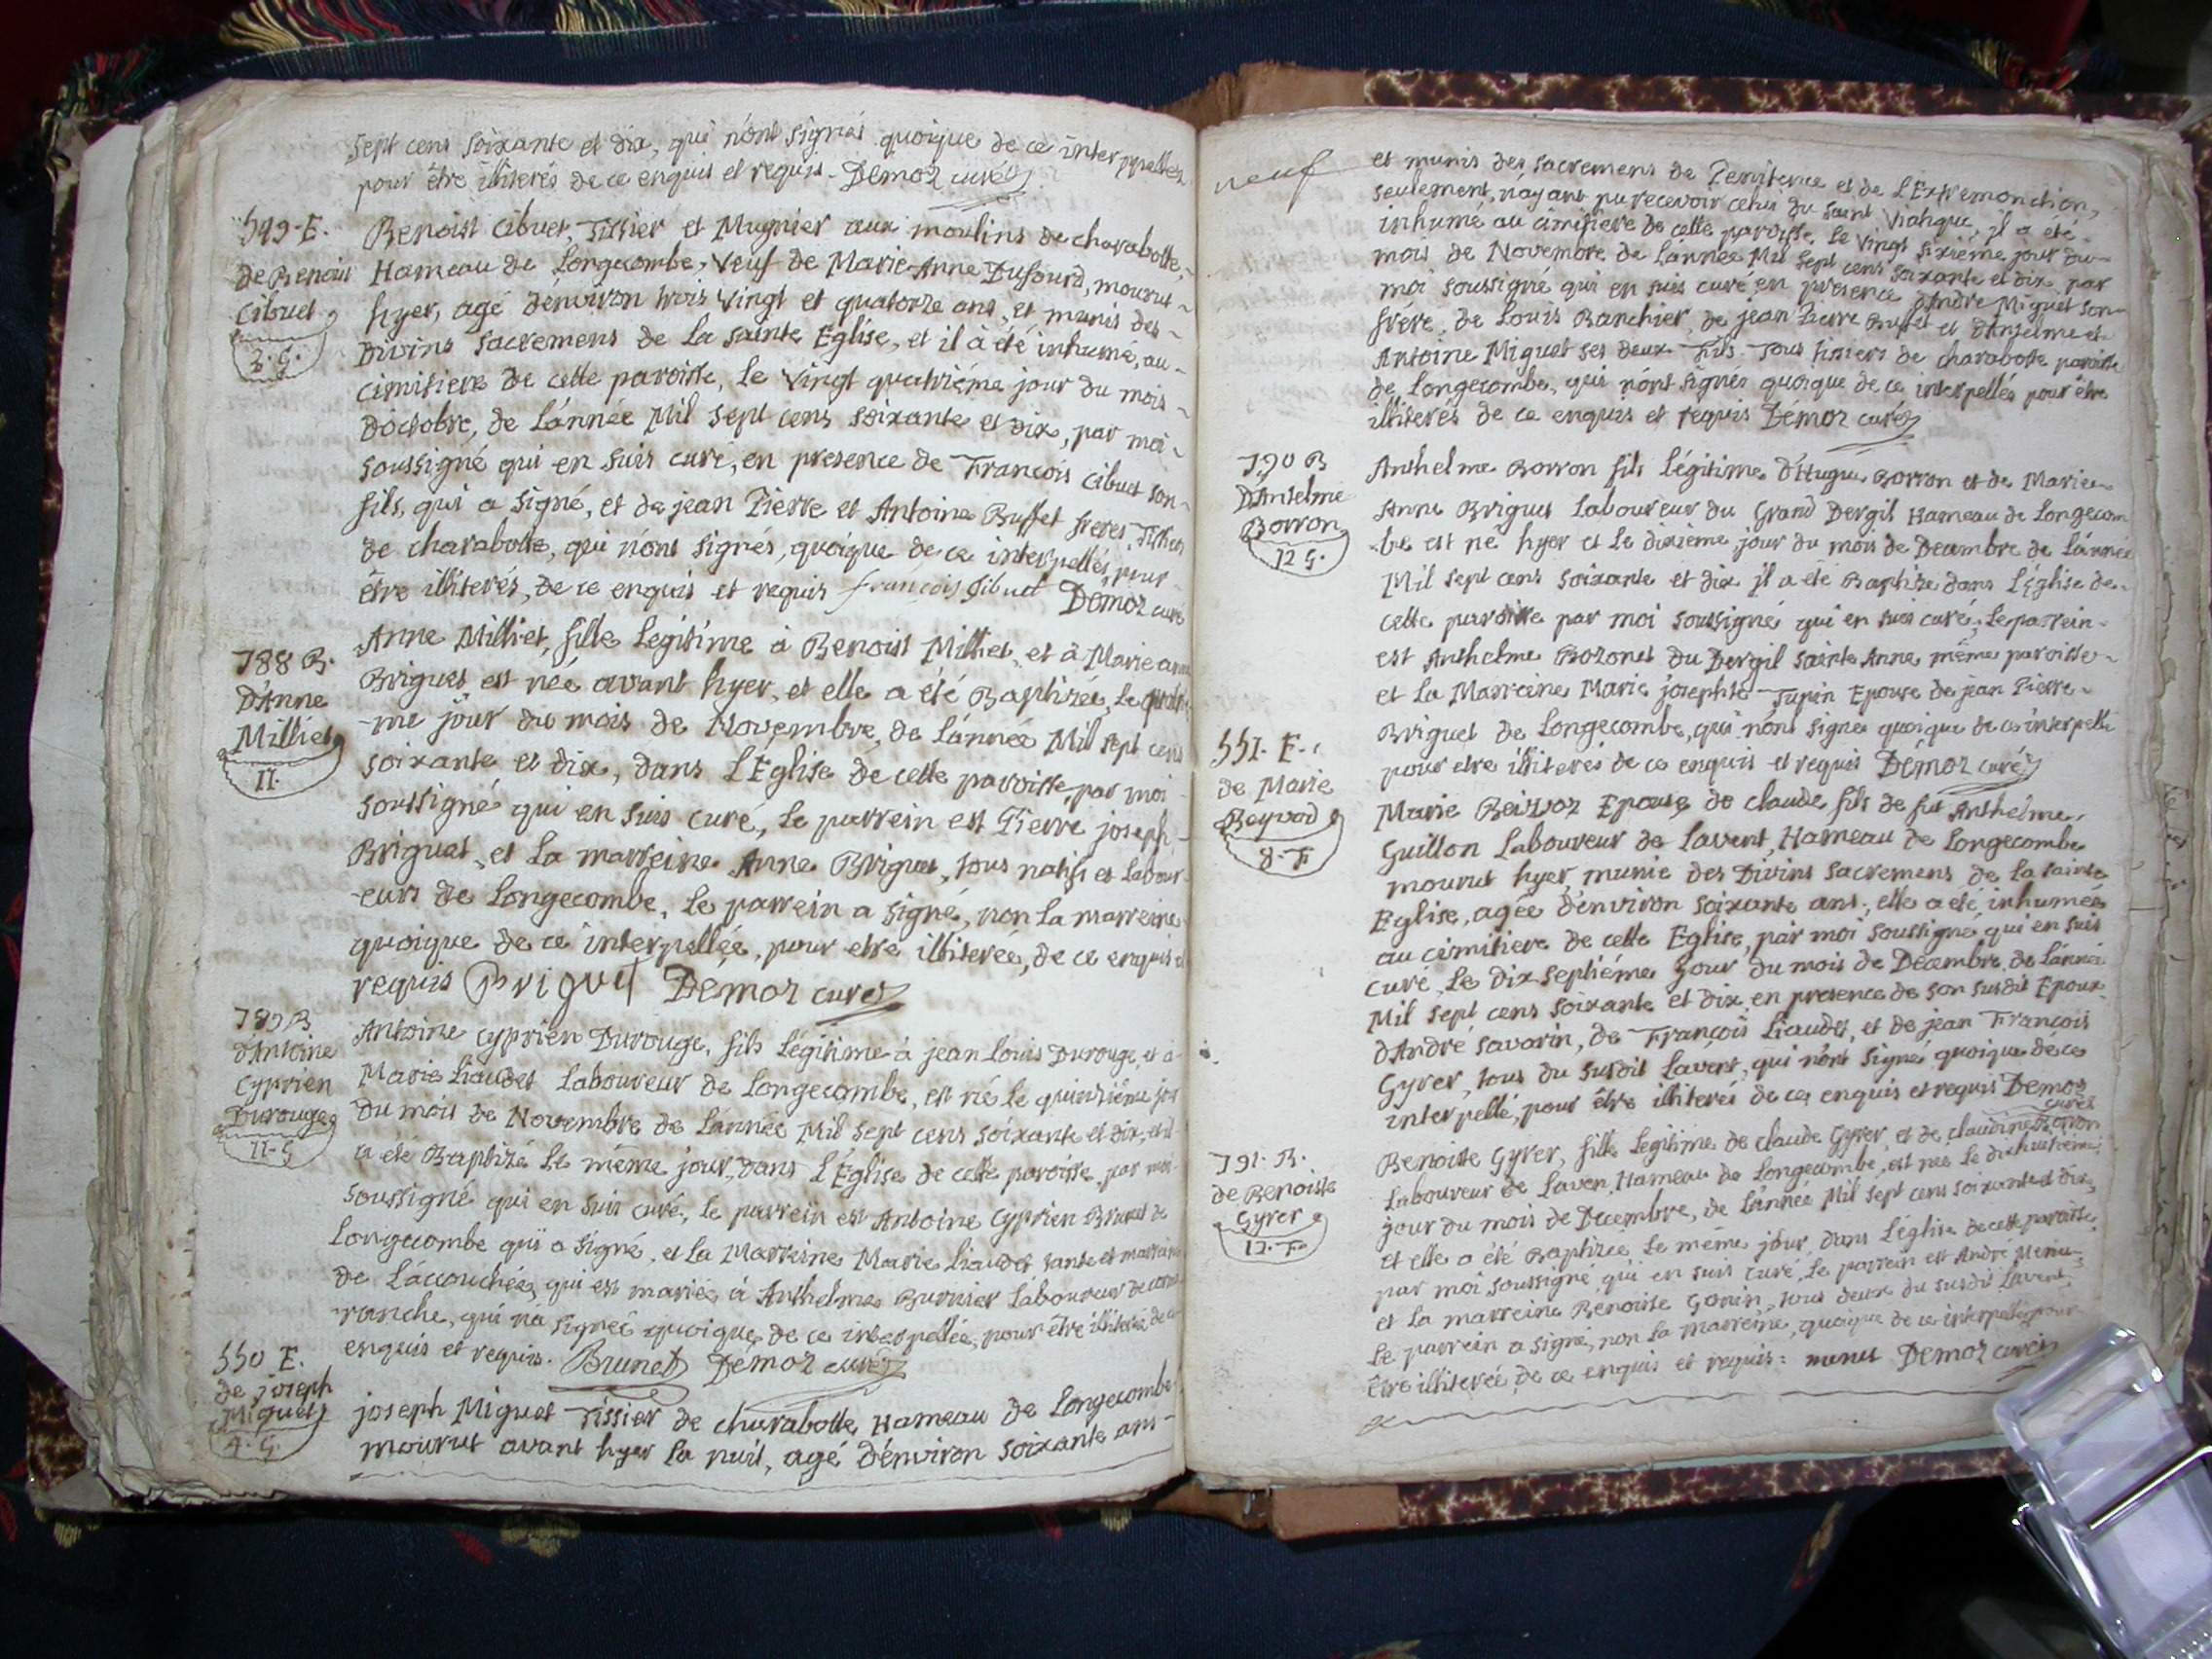 sept cens soixante et dix, qui n'ont signés quoique de ce interppellez
pour être illiterés de ce enquis et requis. Demoz curé
549. E.
de Benoist
Cibuet
2. G.
Benoist Cibuet, Tissier et Mugnier aux moulins de charabotte,
Hameau de Longecombe, Veuf de Marie Anne Dufourd, mourut
hyer, agé d'environ trois vingt et quatorze ans, et munis des
Divins Sacremens de la sainte Eglise, et il à été inhumé, au
cimitiere de cette paroisse, le vingt quatriéme jour du mois
d'octobre, de l'année Mil sept cens soixante et dix, par moi
soussigné qui en suis curé, en presence de Francois Cibuet son
fils, qui a signé, et de jean Pierre et Antoine Buffet freres, Tissiers
de charabotte, qui n'ont signés, quoique de ce interpellés, pour
être illiterés, de ce enquis et requis françois Sibuet Demoz curé
788 B.
D'Anne
Milliet
11.
Anne Milliet, fille Legitime à Benoist Milliet, et à Marie anne
Briguet est née avant hyer, et elle a été Baptizée, le
me jour du mois de Novembre, de l'année Mil sept cens
soixante et dix, dans l'Église de cette paroisse, par moi
soussigné qui en suis curé, le parrein est Pierre joseph
Briguet, et la marreine Anne Briguet, tous natifs et Labour
eurs de Longecombe, le parrein a signé, non la marreine
quoique de ce interpellée, pour etre illiterée, de ce enquis et
requis Briguet Demoz curé
789 B
d'Antoine
Cyprien
Durouge
11. G
Antoine Cyprien Durouge, fils légitime à jean Louis Durouge, et à
Marie Liaudet Laboureur de Longecombe, est né le quinziéme jour
du mois de Novembre de l'année Mil sept cens soixante et dix, et il
a été Baptizé le même jour, dans l'Église de cette paroisse, par moi
soussigné qui en suis curé, le parrein est Antoine Cyprien Brunet de
Longecombe qui a signé, et la Marreine Marie Liaudet tante et marraine
de l'accouchée, qui est mariée à Anthelme Burnier Laboureur de
ranche, qui n'a signée quoique de ce interpellée, pour être illiterée de ce
enquis et requis. Brunet Demoz curé
550 E.
de joseph
Miguet
4. G.
joseph Miguet Tissier de charabotte Hameau de Longecombe
mourut avant hyer la nuit, agé d'environ soixante ans
neuf
et munis des sacremens de Penitence et de l'Extremonction,
seulement, n'ayant pu recevoir celui du saint Viatique, il a été
inhumé au cimitiere de cette paroisse, le vingt sixiéme jour du
mois de Novembre de l'année Mil sept cens soixante et dix, par
moi soussigné qui en suis curé, en presence d'Andre Miguet son
frére, de Louis Banchier, de jean Pierre Buffet et d'Anselme et
Antoine Miguet ses deux Fils. Tous Tissiers de charabotte paroisse
de Longecombe, qui n'ont signés quoique de ce interpellés pour être
illiterés de ce enquis et requis Démoz curé
790 B
D'Anselme
Borron
12 G.
Anthelme Borron fils légitime d'Hugue Borron et de Marie
Anne Briguet Laboureur du Grand Dergit Hameau de Longecom
be est né hyer et le dixième jour du mois de Decembre de l'année
Mil sept cens soixante et dix il a été Baptize dans l'église de
cette paroisse par moi soussigné qui en suis curé, le parrein
est Anthelme Bozonet du Dergit sainte Anne même paroisse
et la Marreine Marie josephte Jupin Epouse de jean Pierre
Briguet de Longecombe, qui n'ont signé quoique de ce interpellé
pour etre illiterés de ce enquis et requis Démoz curé
551. E.
de Marie
Reyvod
8. F
Marie Reivoz Epouse de claude fils de fut Anthelme
Guillon Laboureur de Lavent, Hameau de Longecombe
mourut hyer, munie des Divins sacremens de la sainte
Eglise, agée d'environ soixante ans, elle a été inhumée
au cimitiere de cette Eglise, par moi soussigné qui en suis
curé, le dix septiéme Jour du mois de Décembre de l'année
Mil sept cens soixante et dix, en presence de son susdit Epoux
d'André Savarin, de François Liaudet, et de jean François
Gyrer, tous du susdit Lavent, qui n'ont signé quoique de ce
interpellé, pour être illiterés de ce enquis et requis Demoz
curé
791. B.
de Benoiste
Gyrer
12. F.
Benoiste Gyrer, fille legitime de claude Gyrer et de claudine Borron
Laboureur de Laven, Hameau de Longecombe, est née le dixhuitieme
jour du mois de Decembre, de l'année Mil sept cens soixante et dix,
et elle a été Baptizée le même jour, dans l'église de cette paroisse
par moi soussigné qui en suis curé, le parrein est André
et la marreine Benoiste Gonin, tous deux du susdit Lavent,
le parrein a signé, non la marreine, quoique de ce interpellée pour
être illiterée de ce enquis et requis: Demoz curé